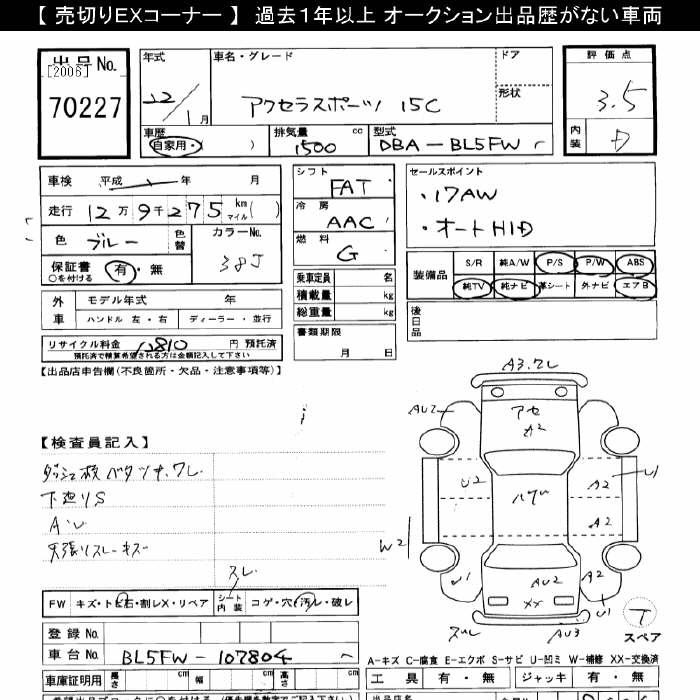 【 売切りEXコーナー 】 過去1年以上 オークション出品歴がない車両
出品No.
[2006]
70227
年式
22/1月
車名・グレード
アクセラスポーツ 15C
ドア
形状
評価点
3.5
内装
D
車歴
自家用・( )
排気量 cc
1500
型式
DBA-BL5FW
車検 平成 年 月
走行 12万9千275 km マイル( )
色 ブルー
色替
カラーNo.
38J
保証書 有・無
○を付ける
外車
モデル年式 年
ハンドル 左・右
ディーラー・並行
リサイクル料金 12810 円 預託済
預託済で精算希望される方は金額記入して下さい
シフト
FAT
冷房
AAC
燃料
G
乗車定員 名
積載量 kg
総重量 kg
書類期限
月 日
セールスポイント
・17AW
・オートHID
装備品
S/R 純A/W P/S P/W ABS
純TV 純ナビ 革シート 外ナビ エアB
後日品
【出品店申告欄(不良箇所・欠品・注意事項等)】
【検査員記入】
下廻りS
A・U
スレ
FW キズ・トビ石・割レX・リペア
シート内装 コゲ・穴・汚レ・破レ
登録No.
車台No. BL5FW-107804
車庫証明用 長さ cm 幅 cm 高さ cm
A3.ワレ
AU2
アセ
A2
U2
A2
U1
A2
W2
U1
AU2
XX
A2
U1
スレ
AU3
T
スペア
A-キズ C-腐食 E-エクボ S-サビ U-凹ミ W-補修 XX-交換済
工具 有・無 ジャッキ 有・無